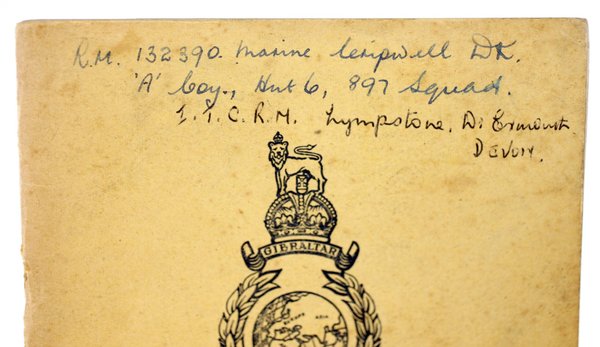 R.M. 132390. Marine Cripwell DK.
'A' Coy., Hut 6, 897 Squad.
I. T. C. R. M. Lympstone, Nr Exmouth
Devon.
GIBRALTAR
EUROPE ASIA